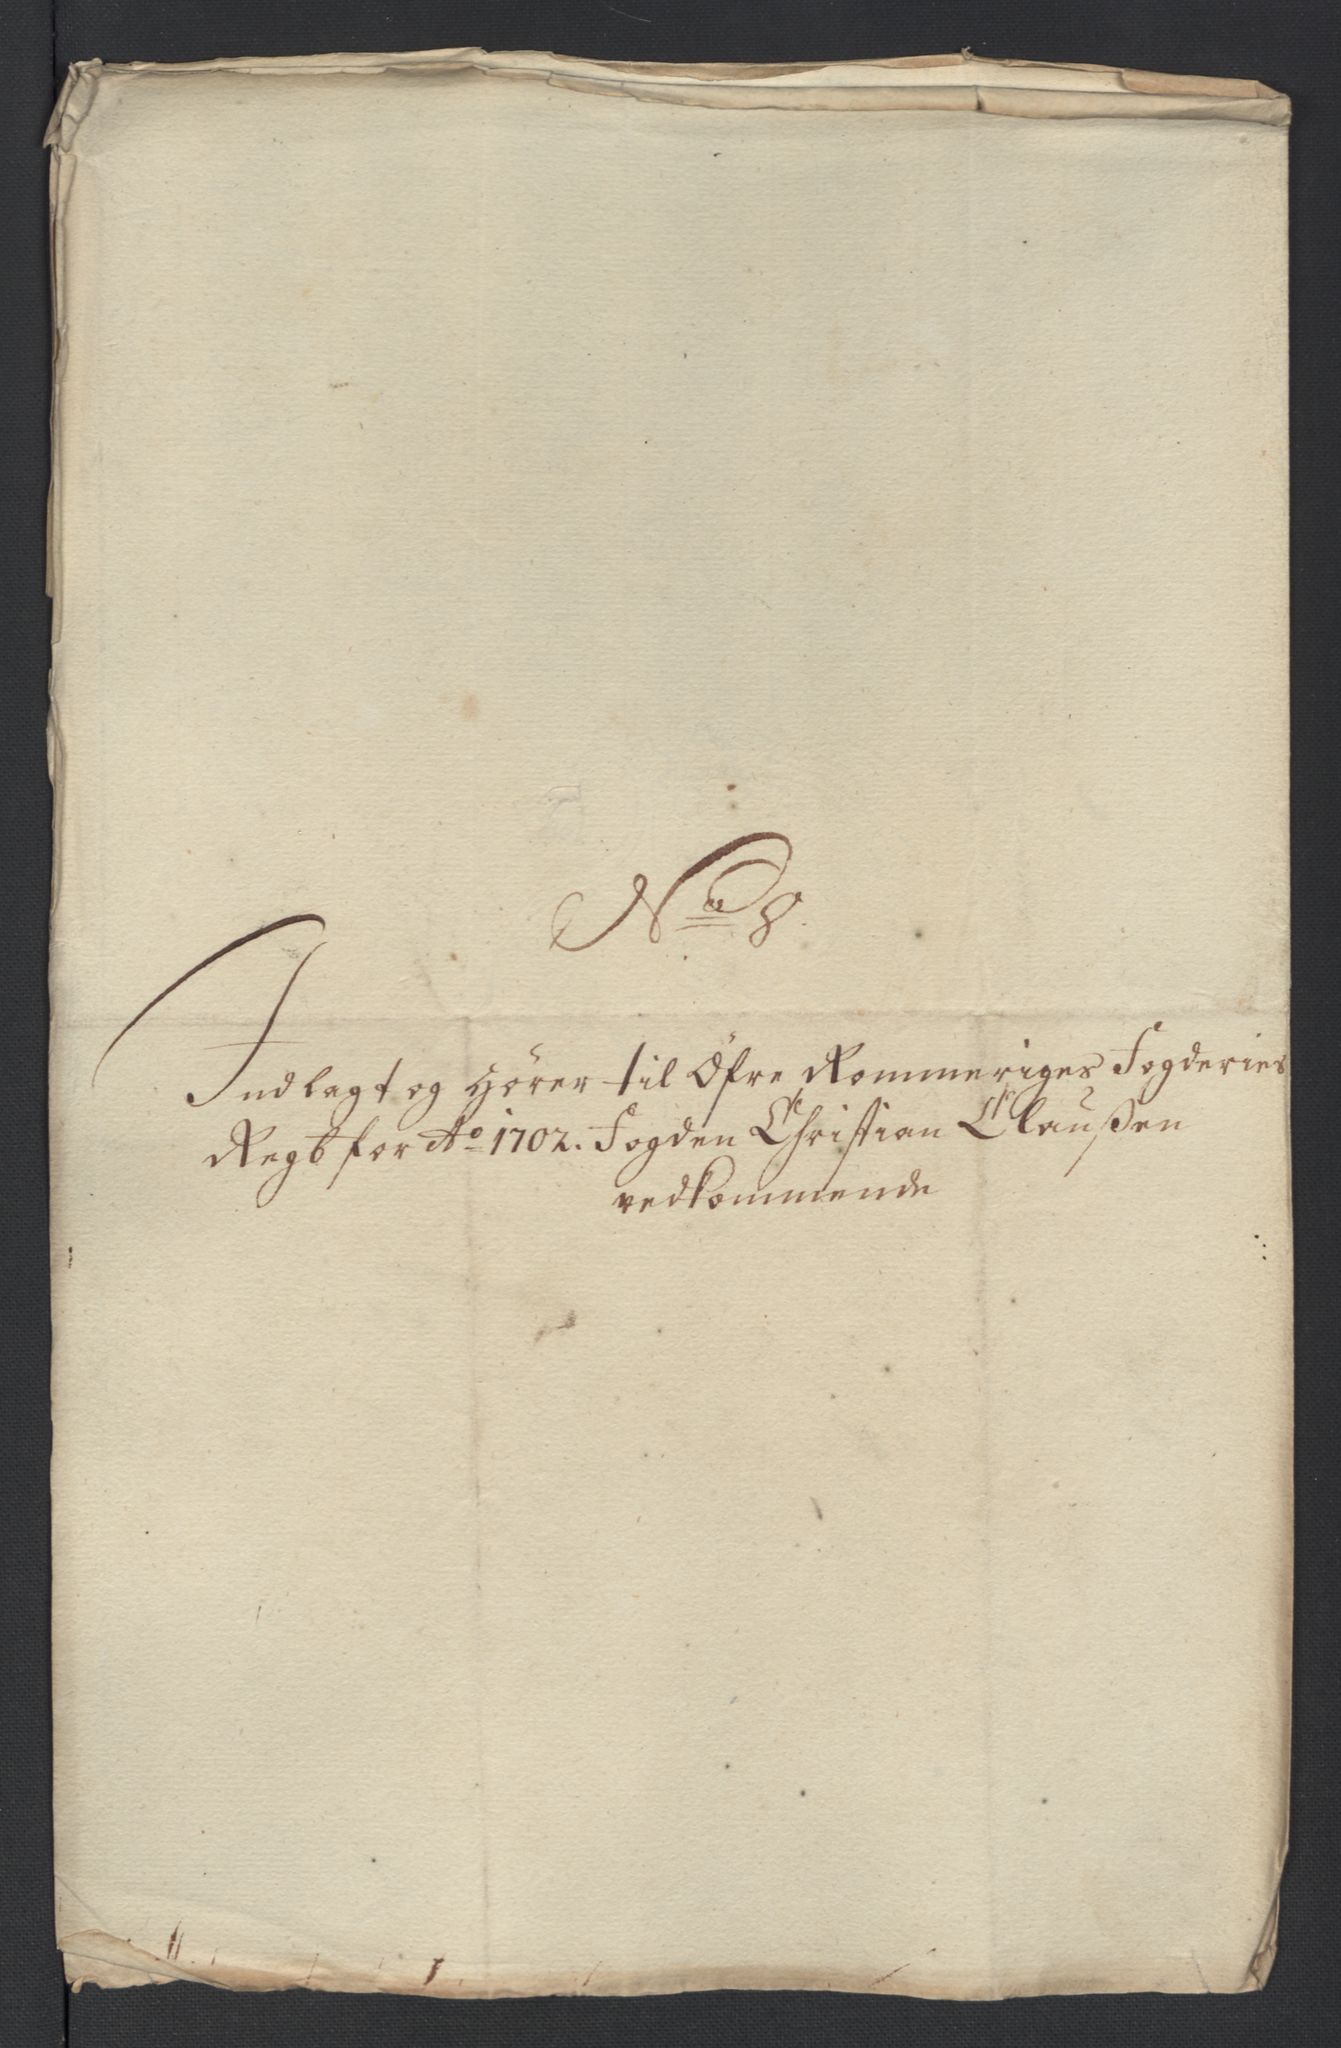 No 8.
Indlagt og hører til Øfre Rommeriges Fogderies
Regb for Ao 1702. Fogden Christian Claußen
vedkommende